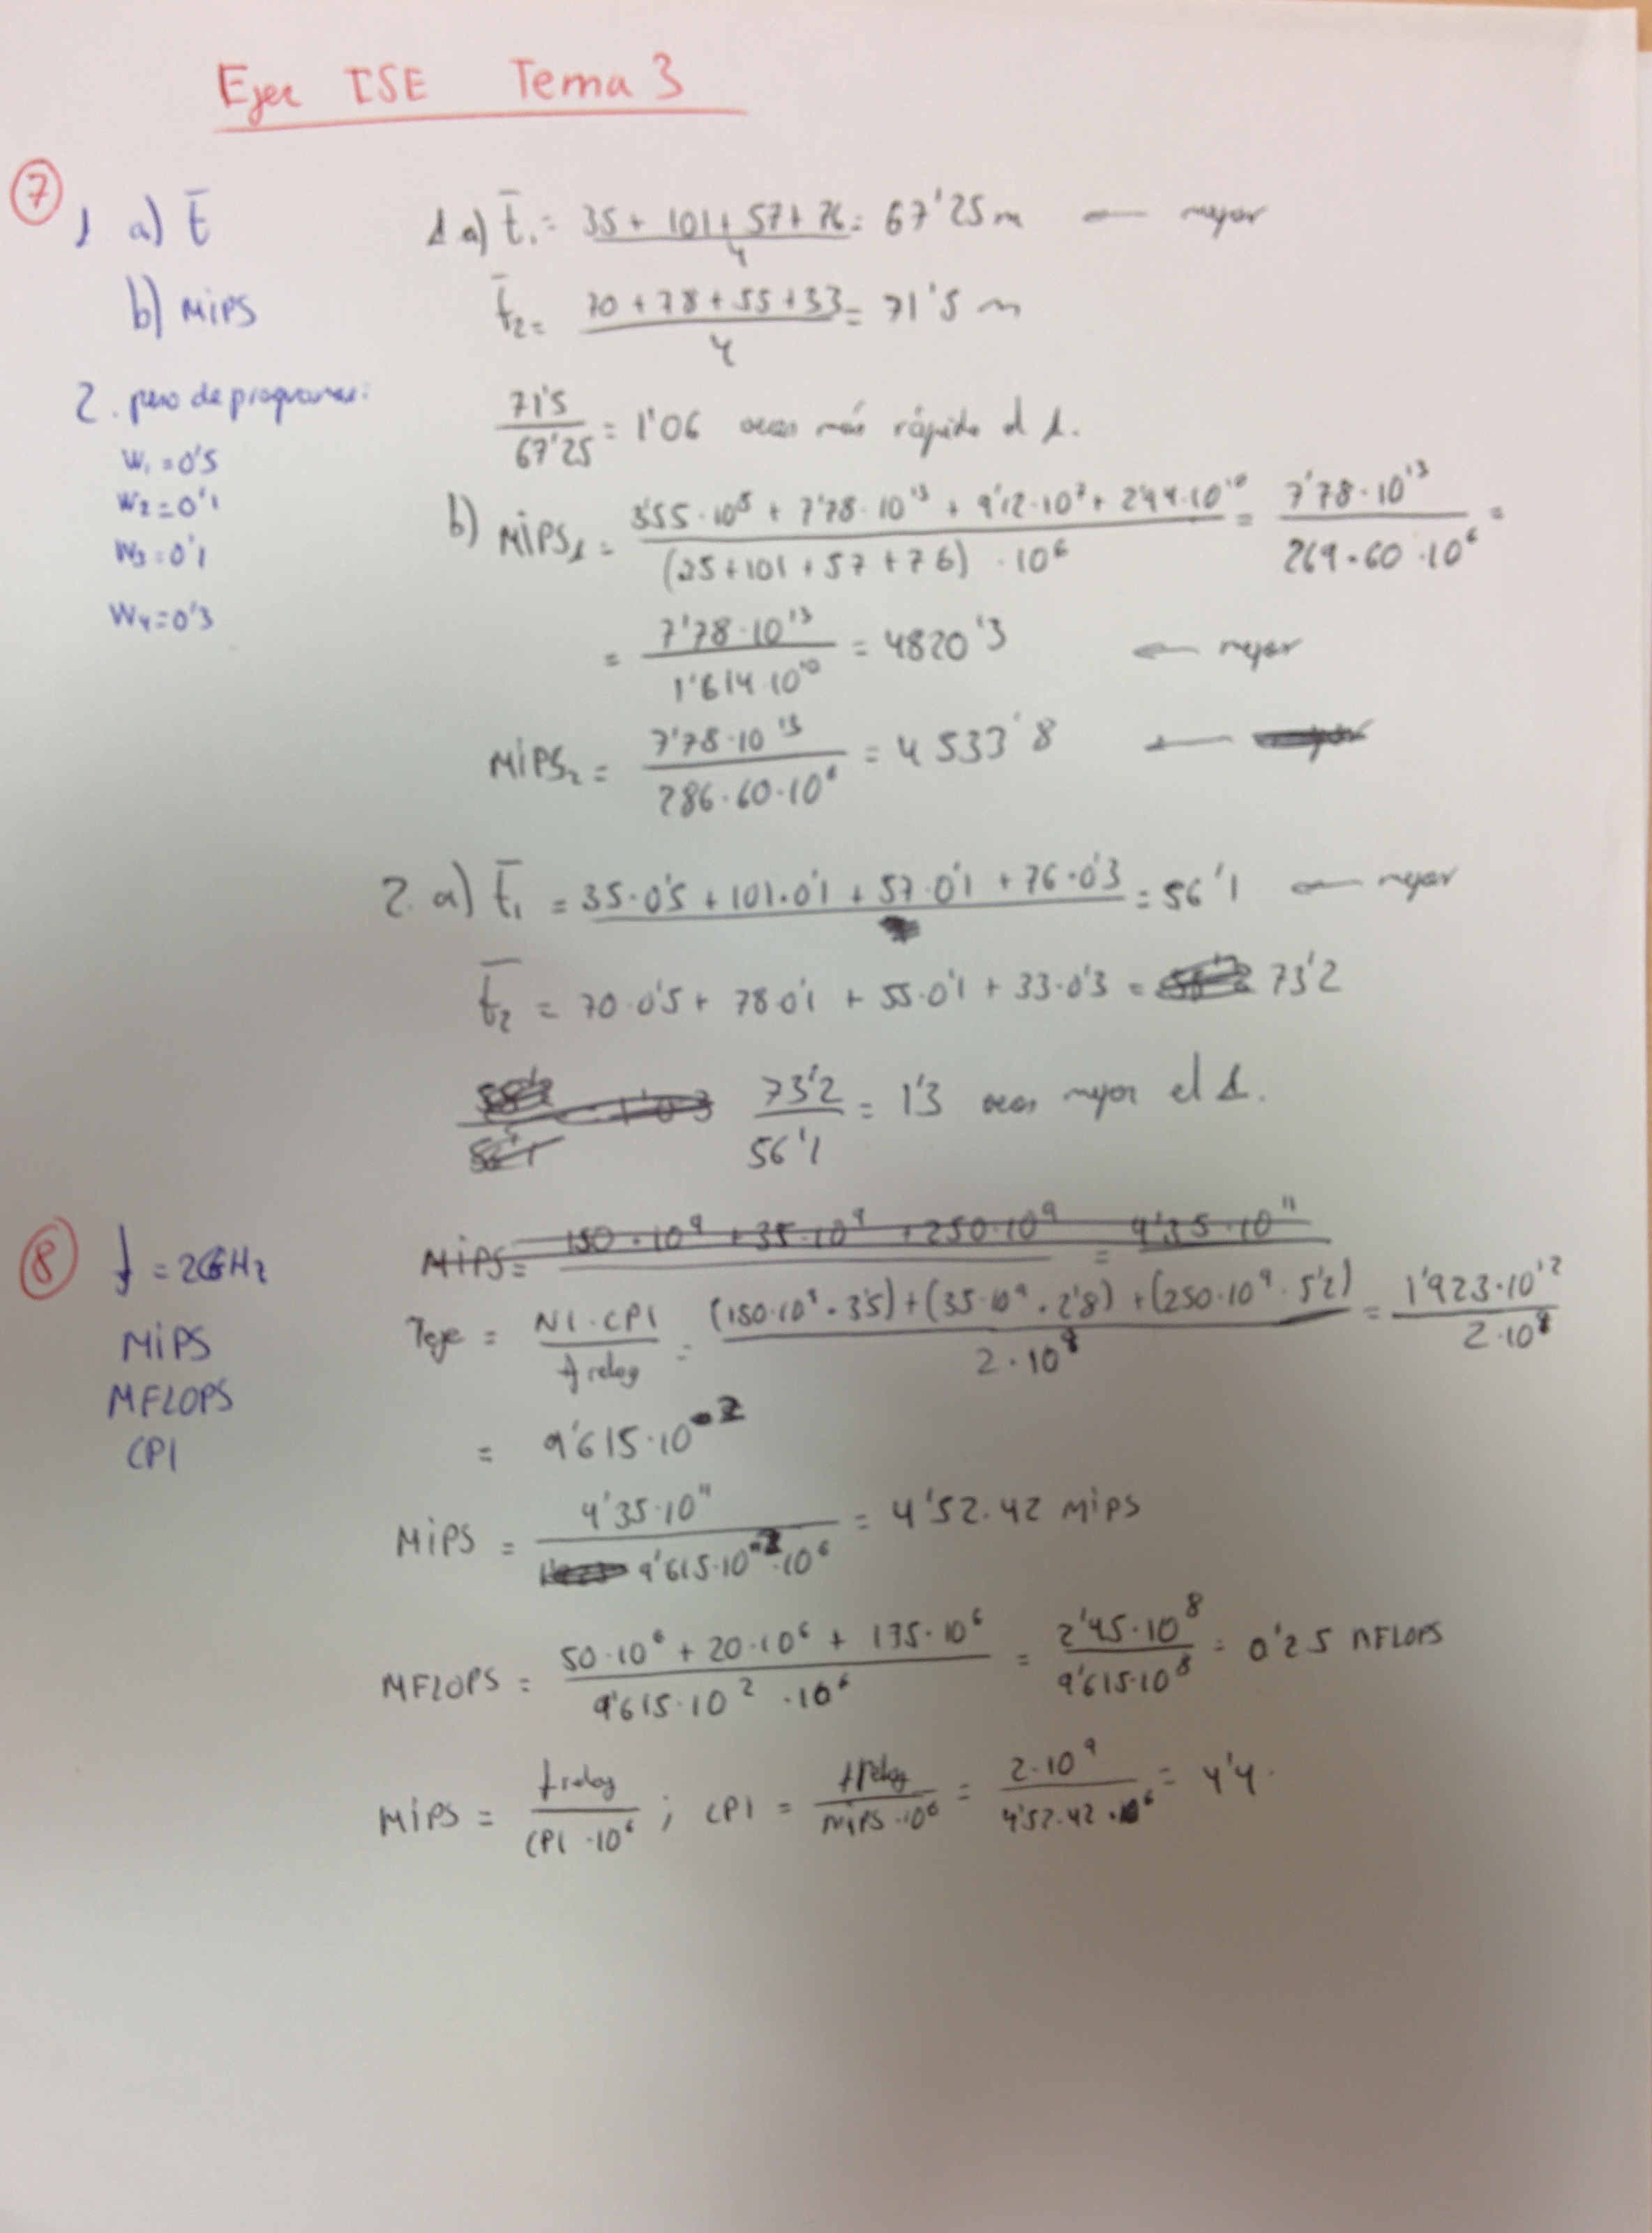 Ejer ISE Tema 3
7
1 a) t̄
b) MIPS
2. peso de programas:
W₁ = 0'5
W₂ = 0'1
W₃ = 0'1
W₄ = 0'3
1 a) t̄₁ = (35 + 101 + 57 + 76)/4 = 67'25 m ← mejor
t̄₂ = (70 + 78 + 55 + 33)/4 = 71'5 m
71'5/67'25 = 1'06 veces más rápido el 1.
b) MIPS₁ = (3'55·10⁸ + 7'78·10¹³ + 9'12·10⁷ + 2'44·10¹⁰)/((25+101+57+76)·10⁶) = 7'78·10¹³/(269·60·10⁶) =
= 7'78·10¹³/1'614·10¹⁰ = 4820'3 ← mejor
MIPS₂ = 7'78·10¹³/(286·60·10⁶) = 4533'8 ←
2. a) t̄₁ = 35·0'5 + 101·0'1 + 57·0'1 + 76·0'3 = 56'1 ← mejor
t̄₂ = 70·0'5 + 78·0'1 + 55·0'1 + 33·0'3 = 73'2
73'2/56'1 = 1'3 veces mejor el 1.
8
f = 2GHz
MIPS
MFLOPS
CPI
MIPS = (150·10⁹ + 35·10⁹ + 250·10⁹) = 4'35·10¹¹
Teje = NI·CPI/f reloj = ((150·10⁹·3'5)+(35·10⁹·2'8)+(250·10⁹·5'2))/2·10⁹ = 1'923·10¹²/2·10⁹
= 9'615·10²
MIPS = 4'35·10¹¹/(9'615·10²·10⁶) = 4'52.42 MIPS
MFLOPS = (50·10⁶ + 20·10⁶ + 175·10⁶)/(9'615·10²·10⁶) = 2'45·10⁸/9'615·10⁸ = 0'25 MFLOPS
MIPS = f reloj/(CPI·10⁶) ; CPI = f reloj/(MIPS·10⁶) = 2·10⁹/(4'52.42·10⁶) = 4'4.